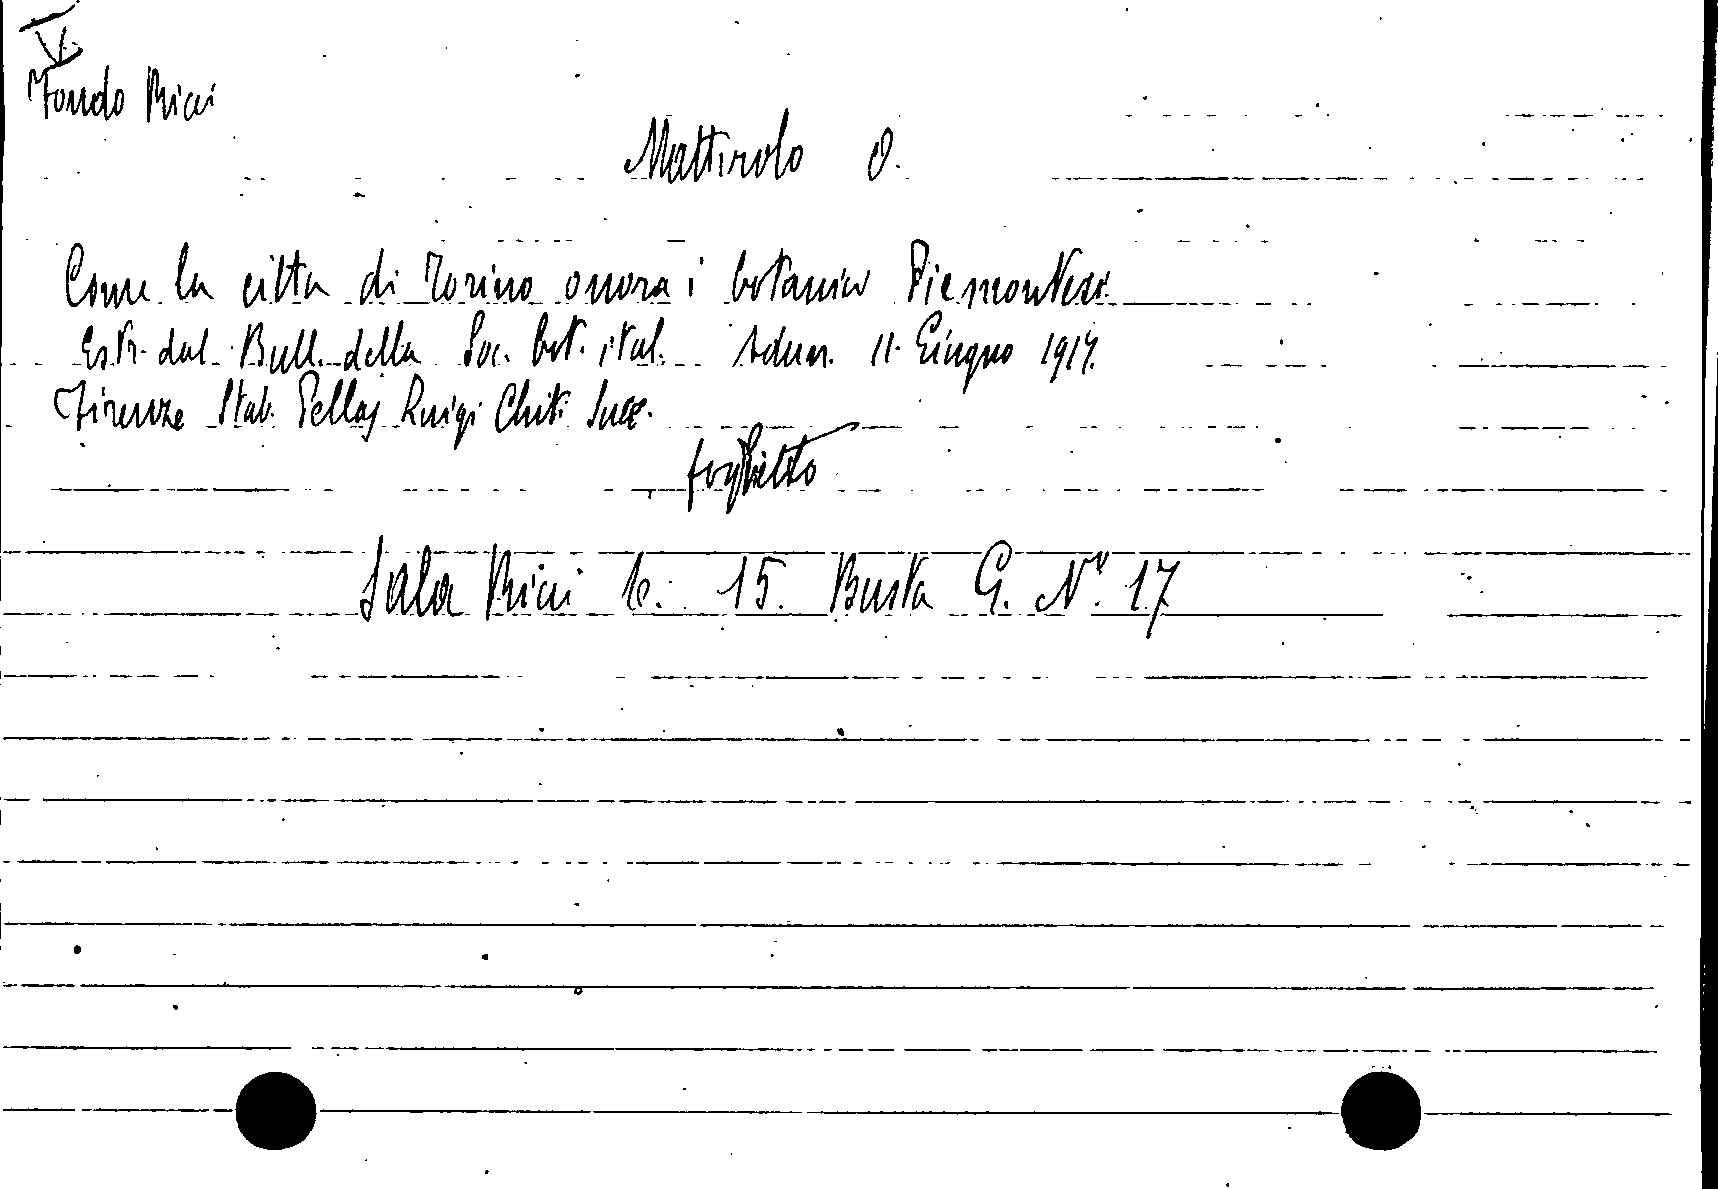 V
Fondo Ricci
Mattirolo O.
Come la citta di Torino onora i botanici Piemontesi
Estr. dal Bull. della Soc. bot. ital. Adun. 11 Giugno 1914.
Firenze Stab. Pellas Luigi Chiti Succ.
foglietto
Sala Ricci b. 15. Busta G. N° 17